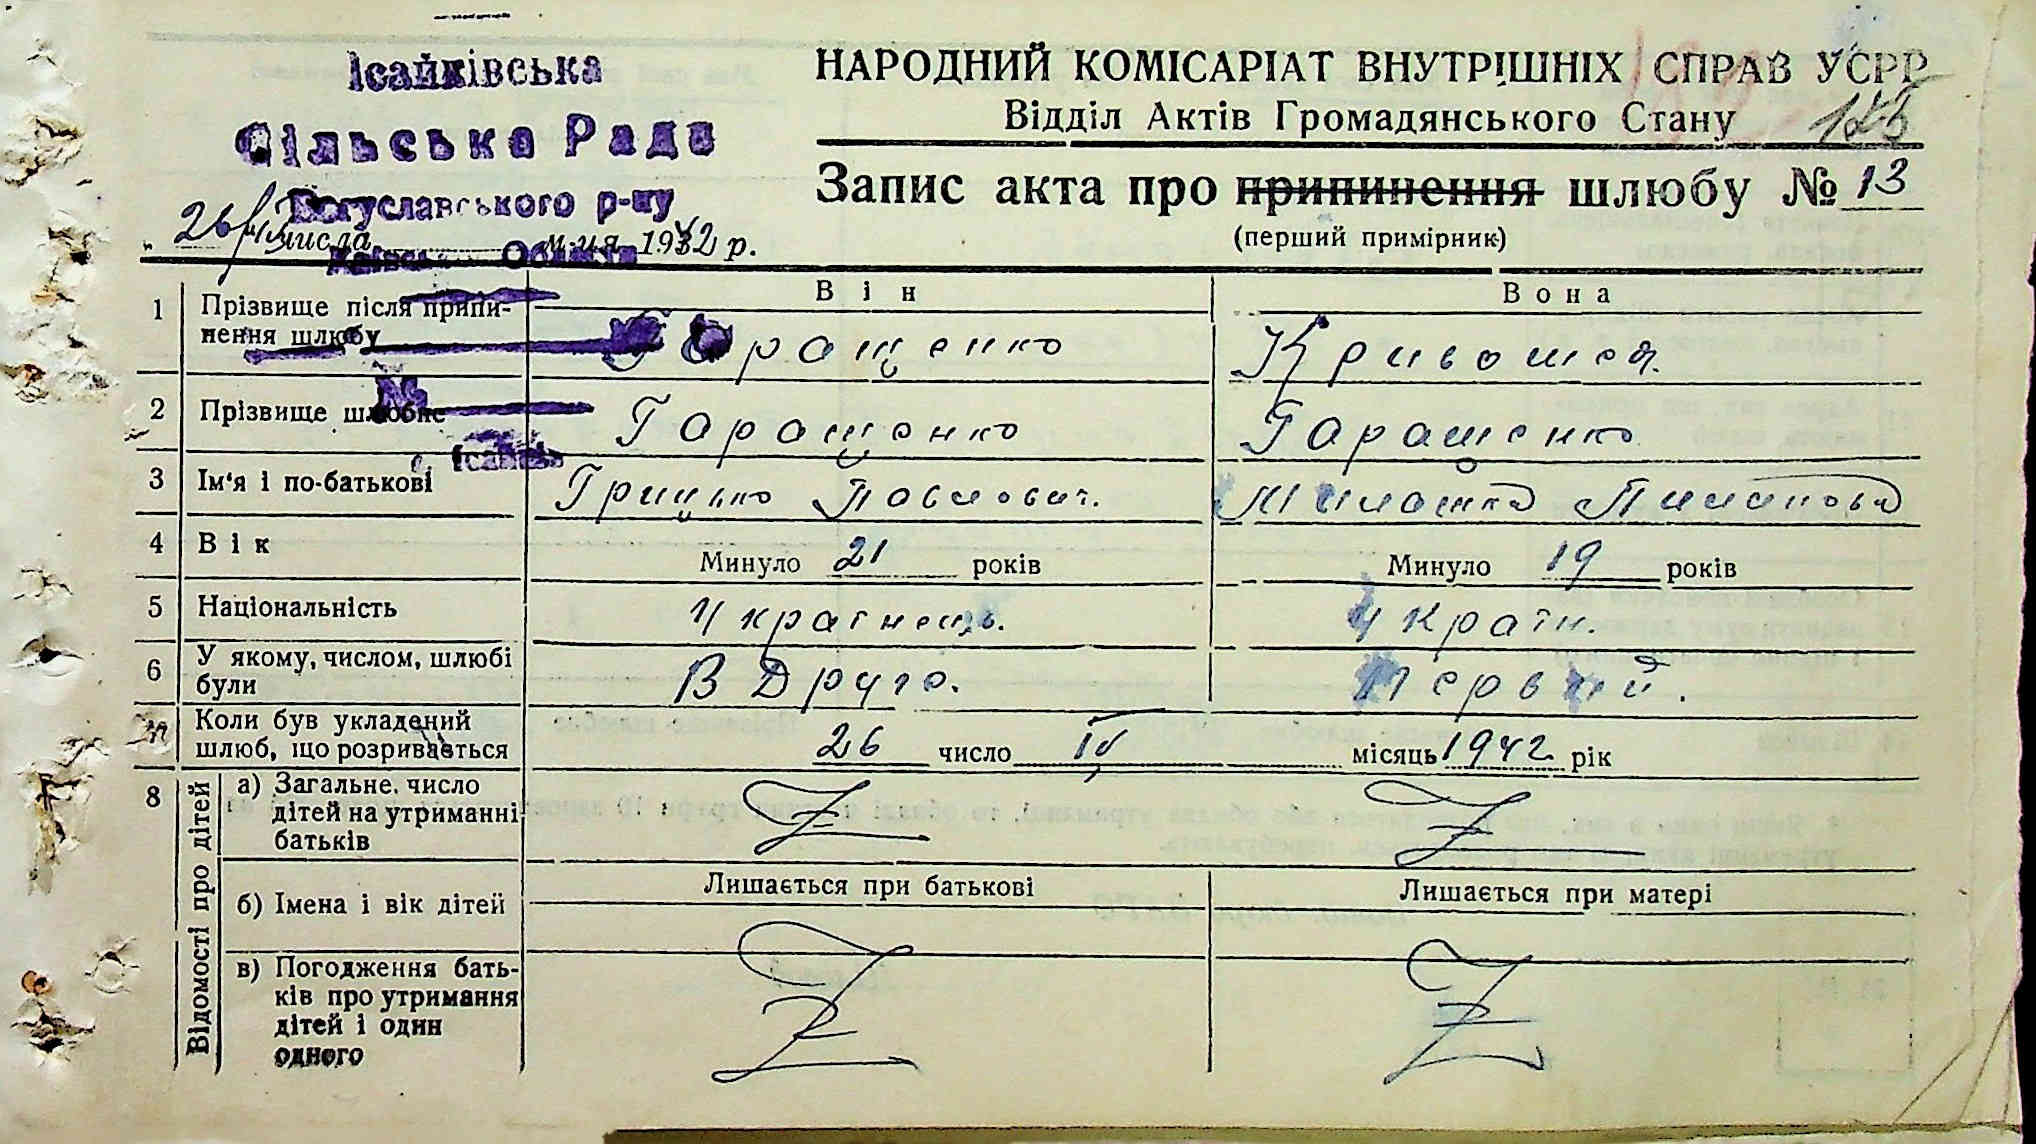 Ісайківська
Сільська Рада
Богуславського р-ну
Київської Області
НАРОДНИЙ КОМІСАРІАТ ВНУТРІШНІХ СПРАВ УСРР
Відділ Актів Громадянського Стану
Запис акта про припинення шлюбу № 13
(перший примірник)
„ 26/IV числа м-ця 1942 р.
Він
Вона
1 Прізвище після припи-
нення шлюбу
Гаращенко
Кривошея.
2 Прізвище шлюбне
Гаращенко
Гаращенко
3 Ім'я і по-батькові
Грицько Павлович.
4 Вік
Минуло 21 років
Минуло 19 років
5 Національність
Українець.
Україн.
6 У якому, числом, шлюбі
були
В Друго.
Первий.
Коли був укладений
шлюб, що розривається
26 число IV місяць 1942 рік
8 Відомості про дітей
а) Загальне. число
дітей на утриманні
батьків
б) Імена і вік дітей
Лишається при батькові
Лишається при матері
в) Погодження бать-
ків про утримання
дітей і один
одного